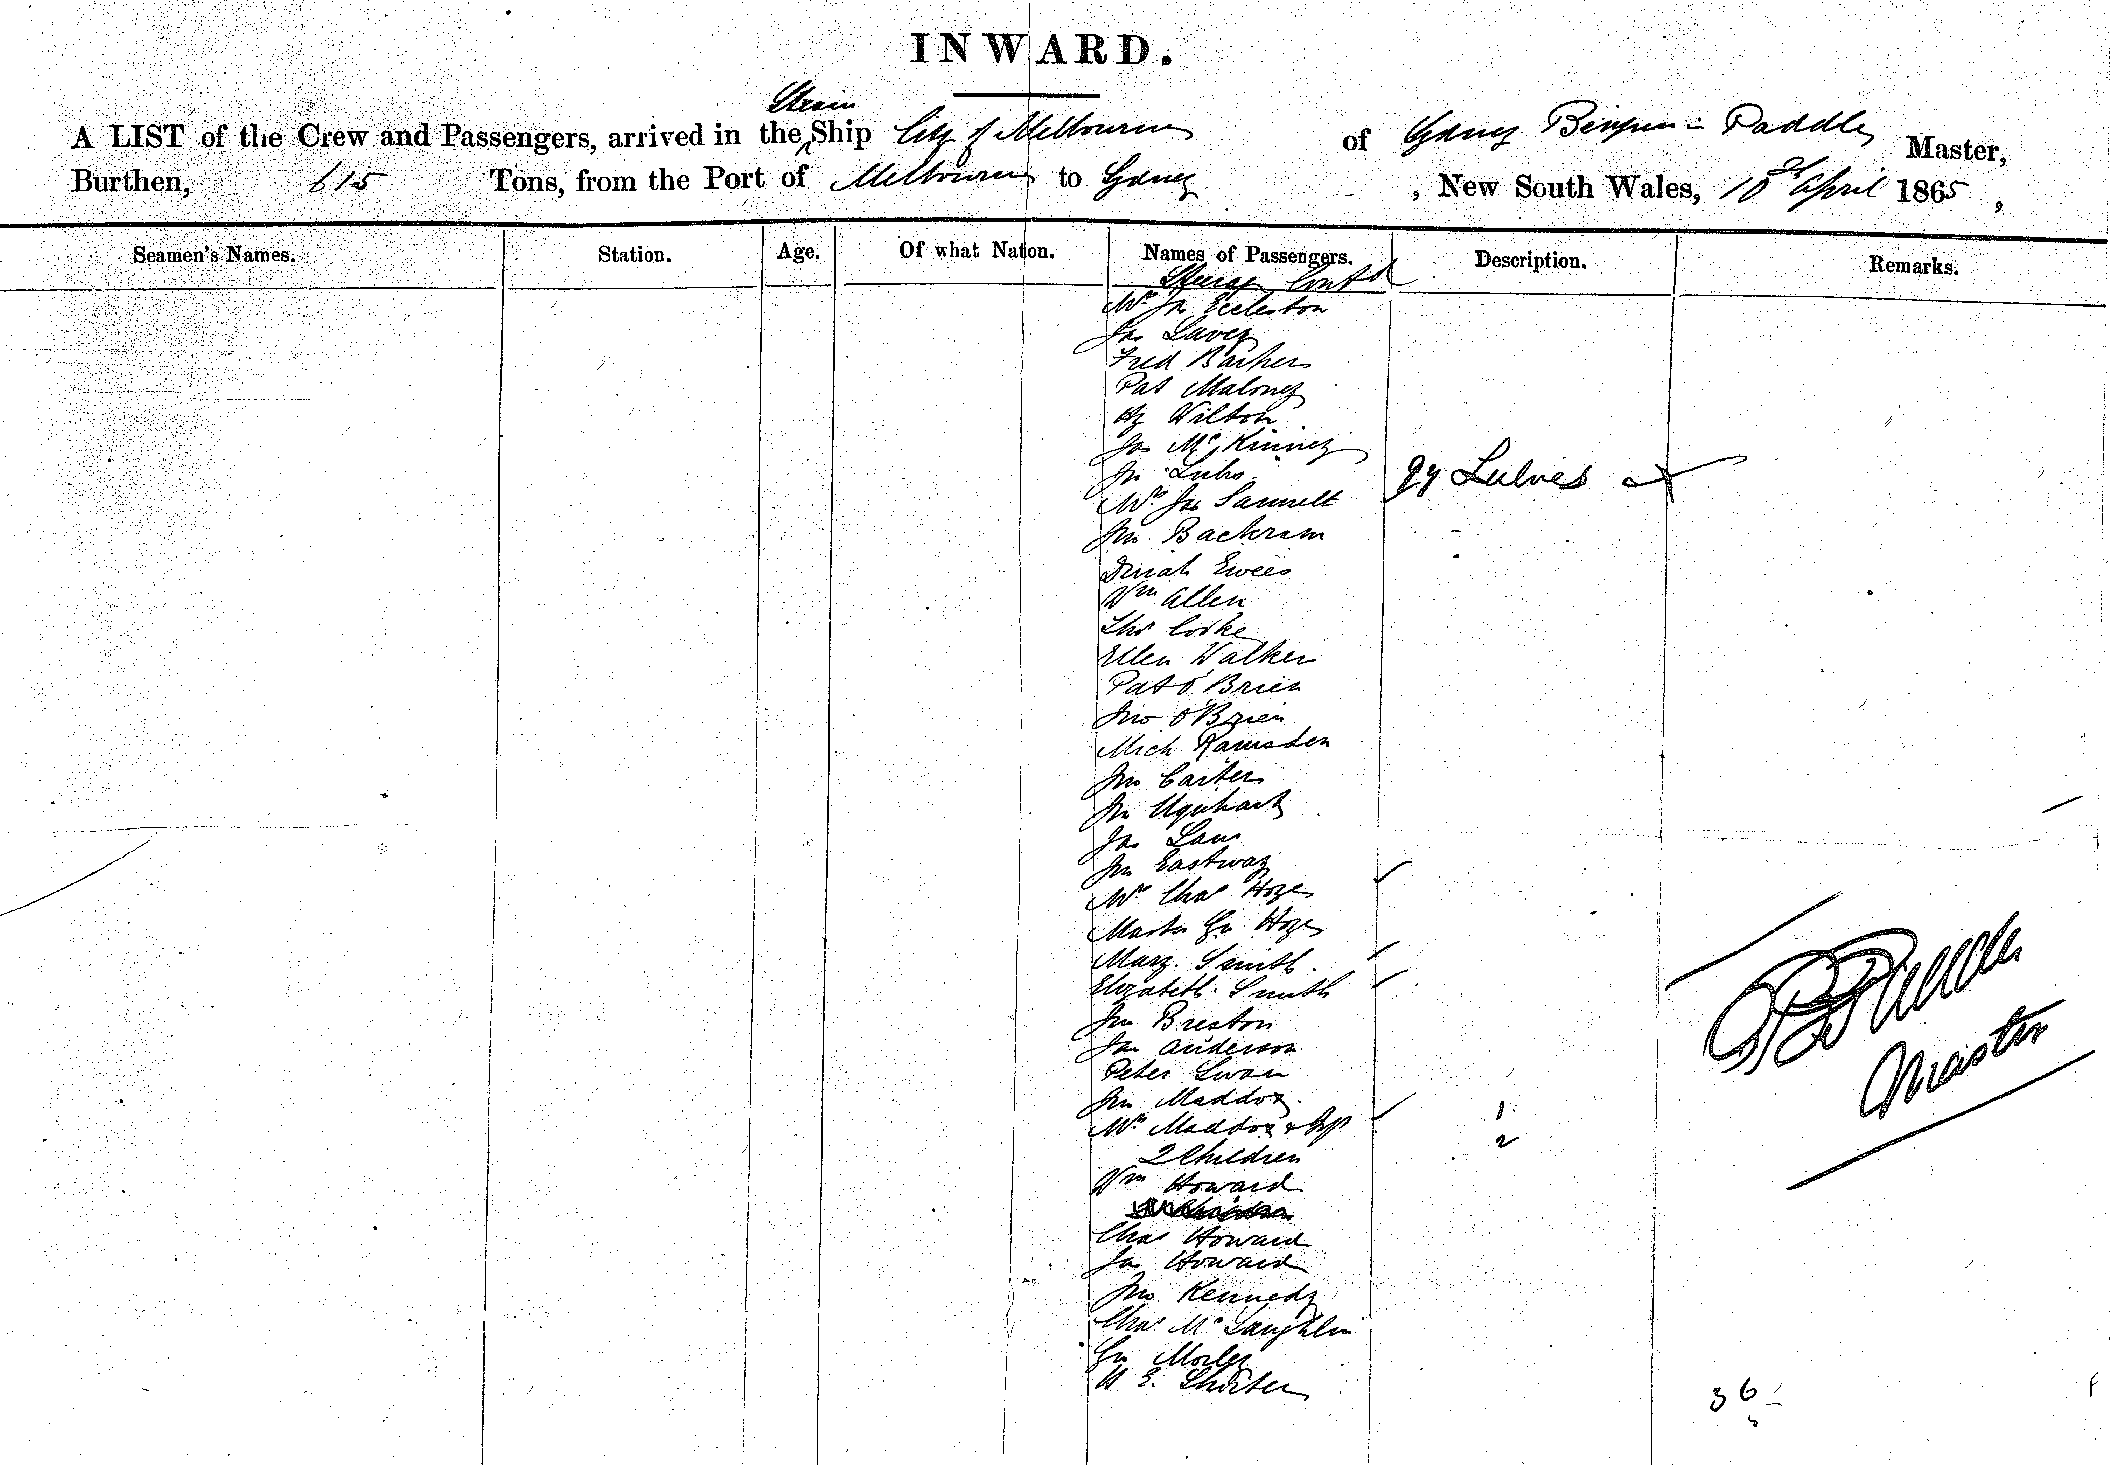 INWARD.
Steam
A LIST of the Crew and Passengers, arrived in the Ship City of Melbourne of Sydney Paddle Master,
Burthen, 615 Tons, from the Port of Melbourne to Sydney , New South Wales, 10th April 1865 ,
Seamen's Names. Station. Age. Of what Nation. Names of Passengers. Description. Remarks.
Contd
Mr Jn Eccleston
Jas Lavey
Fred Barker
Pat Maloney
Hy Wilton
Jas McKinney
Jn Lulvs Lulves
Mrs Jas
Jno
Dinah
Wm Allen
Thos Cooke
Ellen Walker
Pat O'Brien
Jno O'Brien
Mich Ramsden
Jno Carter
Jn Uquhart
Jas Law
Jno Eastway
Mr Chas Hoze
Master Geo Hoze
Mary Smith
Elizabeth Smith
Jno Breston
Jas Anderson
Peter Swan
Jno Maddox
Mrs Maddox & 1
2 Children 2
Wm Howard
Chas Howard
Jas Howard
Jno Kennedy
Chas McLaughlin
Geo
E. Shorter
Master
36